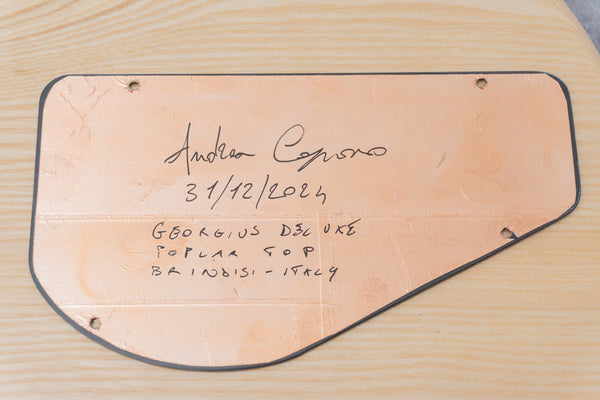 Andrea Capone
31/12/2024
GEORGIUS DELUXE
POPLAR TOP
BRINDISI-ITALY